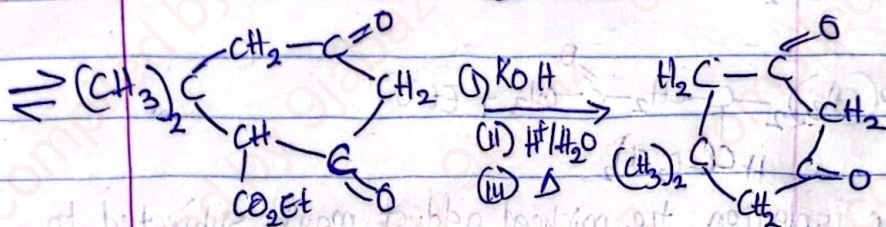 ⇌ (CH3)2 C CH2 – C = O CH2 C = O CH CO2Et (i) KOH (ii) H+/H2O (iii) Δ H2C – C = O CH2 C = O CH2 C (CH3)2